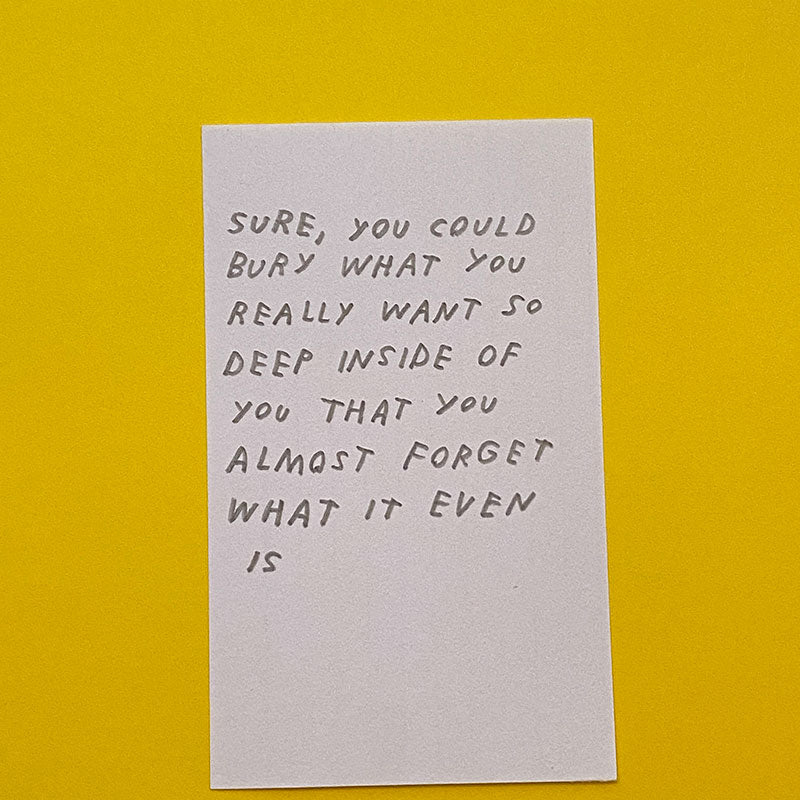 SURE, YOU COULD
BURY WHAT YOU
REALLY WANT SO
DEEP INSIDE OF
YOU THAT YOU
ALMOST FORGET
WHAT IT EVEN
IS